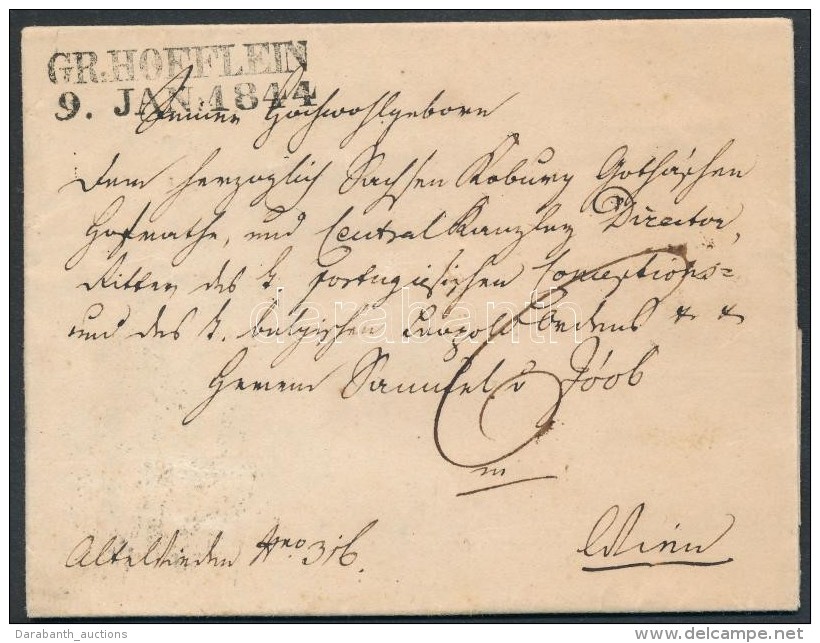 GR. HOEFLEIN
9. JAN. 1844
Seiner Hochwohlgeboren
Dem herzoglich Sachsen Koburg Gotha'schen
Hofrathe, und Central Kanzley Director,
Ritter des k. portugiesischen Conceptions=
und des k. belgischen Leopold Ordens & &
Herrn Samuel v Joób
6
in
Wien
Nro 316.
darabanth
Darabanth_auctions
www.delcampe.net